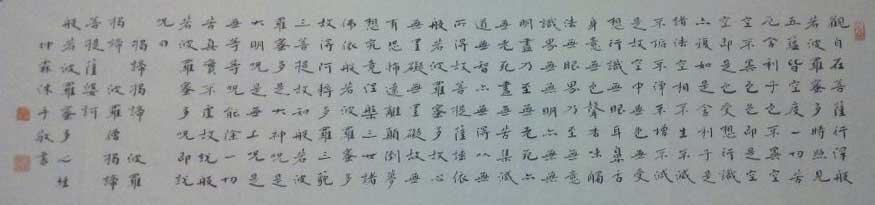 觀自在菩薩行深般
若波羅蜜多時照見
五蘊皆空度一切苦
厄舍利子色不異空
空不異色色即是空
空即是色受想行識
亦復如是舍利子是
諸法空相不生不滅
不垢不淨不增不減
是故空中無色無受
想行識無眼耳鼻舌
身意無色聲香味觸
法無眼界乃至無意
識界無無明亦無無
明盡乃至無老死亦
無老死盡無苦集滅
道無智亦無得以無
所得故菩提薩埵依
般若波羅蜜多故心
無罣礙無罣礙故無
有恐怖遠離顛倒夢
想究竟涅槃三世諸
佛依般若波羅蜜多
故得阿耨多羅三藐
三菩提故知般若波
羅蜜多是大神咒是
大明咒是無上咒是
無等等咒能除一切
苦真實不虛故說般
若波羅蜜多咒即說
咒曰
揭諦揭諦波羅
揭諦波羅僧揭諦
菩提薩婆訶
般若波羅蜜多心經
仲霖沐手敬書